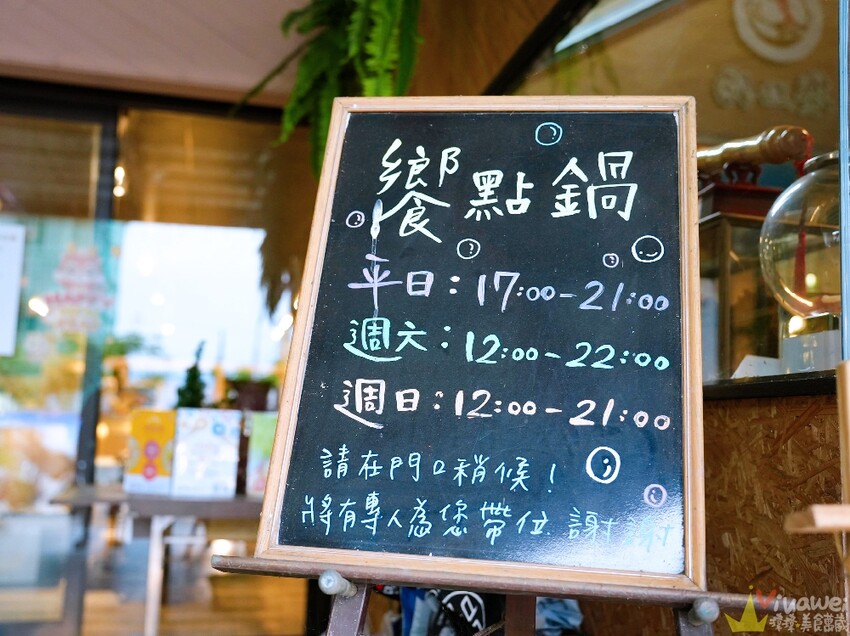 饗點鍋
平日：17:00-21:00
週六：12:00-22:00
週日：12:00-21:00
請在門口稍候！
將有專人為您帶位 謝謝
Viyawei